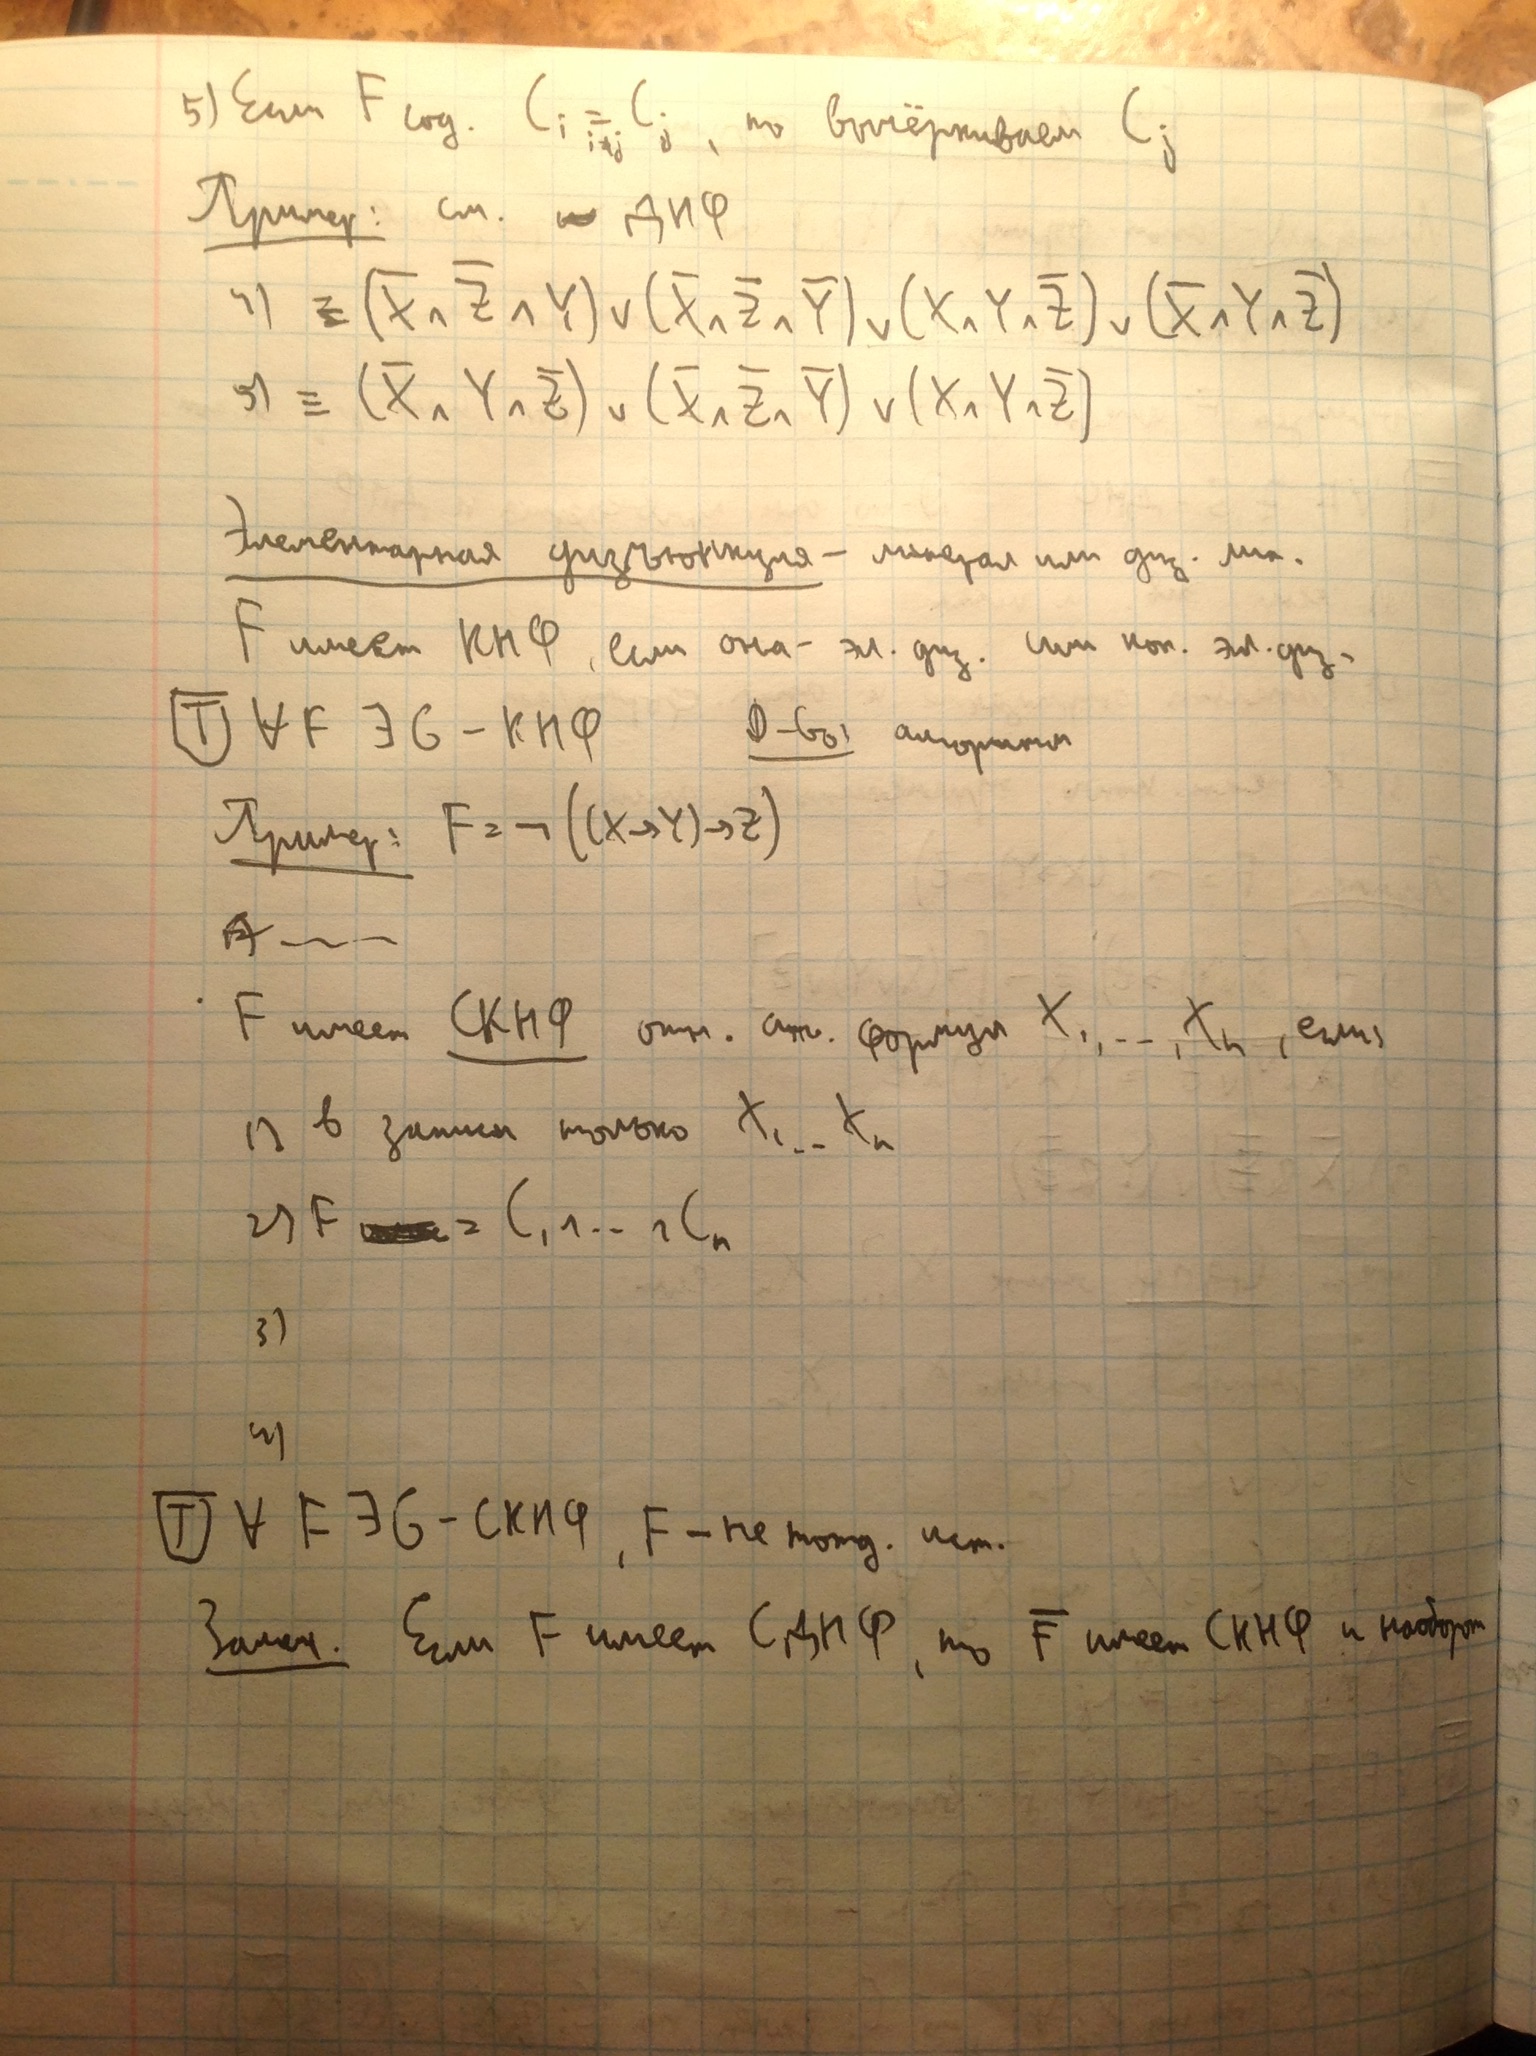 5) Если F сод. Cᵢ ≡ Cⱼ, i≠j, то вычёркиваем Cⱼ
Пример: см. ДНФ
4) ≡ (X̅ ∧ Z̅ ∧ Y) ∨ (X̅ ∧ Z̅ ∧ Y̅) ∨ (X ∧ Y ∧ Z̅) ∨ (X̅ ∧ Y ∧ Z̅)
5) ≡ (X̅ ∧ Y ∧ Z̅) ∨ (X̅ ∧ Z̅ ∧ Y̅) ∨ (X ∧ Y ∧ Z̅)
Элементарная дизъюнкция – литерал или диз. лит.
F имеет КНФ, если она – эл. диз. или кон. эл. диз.
Т ∀F ∃G – КНФ D-во: алгоритм
Пример: F = ¬((X→Y)→Z)
F имеет СКНФ отн. ат. формул X₁, ..., Xₙ, если:
1) в записи только X₁...Xₙ
2) F = C₁ ∧ ... ∧ Cₙ
3)
4)
Т ∀ F ∃G – СКНФ, F – не тожд. ист.
Замеч. Если F имеет СДНФ, то F̅ имеет СКНФ и наоборот